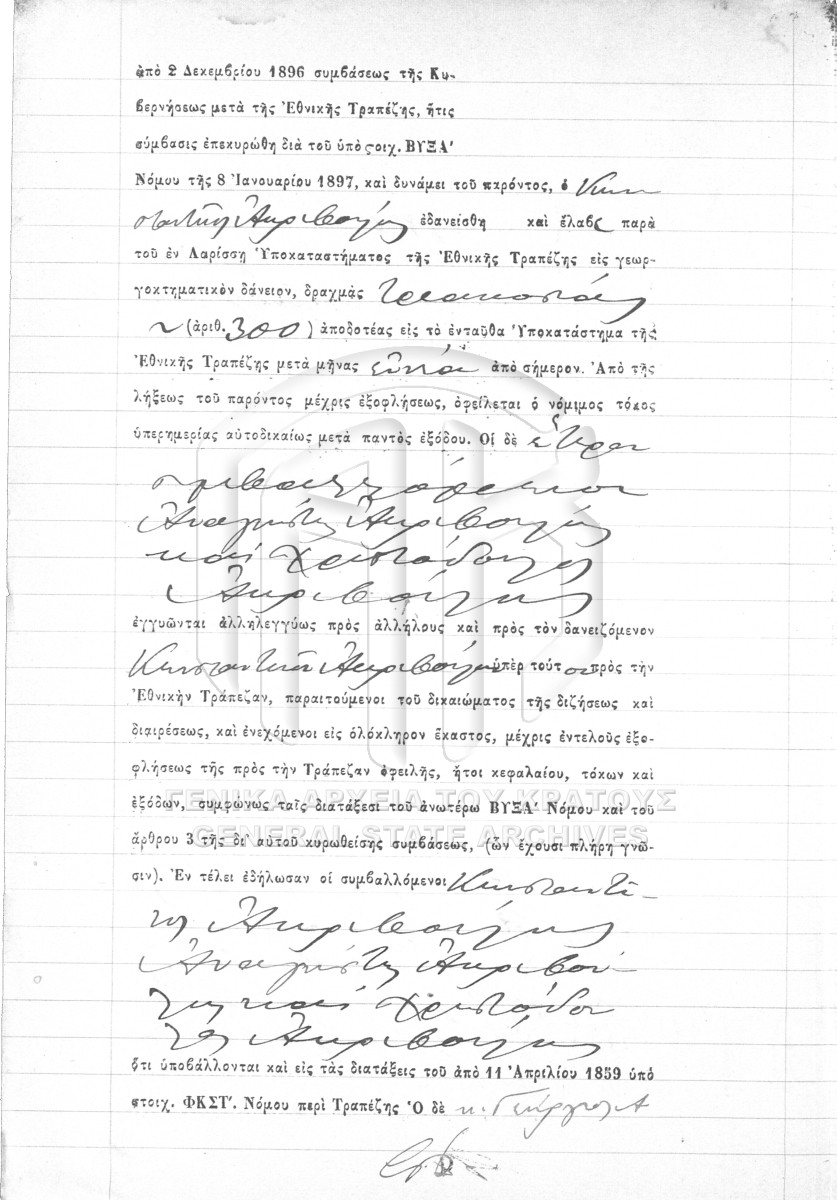 ἀπὸ 2 Δεκεμβρίου 1896 συμβάσεως τῆς Κυ-
βερνήσεως μετὰ τῆς Ἐθνικῆς Τραπέζης, ἥτις
σύμβασις ἐπεκυρώθη διὰ τοῦ ὑπὸ ϛοιχ. ΒΥΞΑ′
Νόμου τῆς 8 Ἰανουαρίου 1897, καὶ δυνάμει τοῦ παρόντος, ὁ Κων
σταντῖνος Ἀκριβούλης ἐδανείσθη καὶ ἔλαβε παρὰ
τοῦ ἐν Λαρίσσῃ Ὑποκαταστήματος τῆς Ἐθνικῆς Τραπέζης εἰς γεωρ-
γοκτηματικὸν δάνειον, δραχμὰς τριακοσίας
(ἀριθ. 300) ἀποδοτέας εἰς τὸ ἐνταῦθα Ὑποκατάστημα τῆς
Ἐθνικῆς Τραπέζης μετὰ μῆνας ἐννέα ἀπὸ σήμερον. Ἀπὸ τῆς
λήξεως τοῦ παρόντος μέχρις ἐξοφλήσεως, ὀφείλεται ὁ νόμιμος τόκος
ὑπερημερίας αὐτοδικαίως μετὰ παντὸς ἐξόδου. Οἱ δὲ ἕτεροι
συμβαλλόμενοι
Ἀναγνώστης Ἀκριβούλης
καὶ Χριστόδουλος
Ἀκριβούλης
ἐγγυῶνται ἀλληλεγγύως πρὸς ἀλλήλους καὶ πρὸς τὸν δανειζόμενον
Κωνσταντῖνον Ἀκριβούλην ὑπὲρ τούτου πρὸς τὴν
Ἐθνικὴν Τράπεζαν, παραιτούμενοι τοῦ δικαιώματος τῆς διζήσεως καὶ
διαιρέσεως, καὶ ἐνεχόμενοι εἰς ὁλόκληρον ἕκαστος, μέχρις ἐντελοῦς ἐξο-
φλήσεως τῆς πρὸς τὴν Τράπεζαν ὀφειλῆς, ἤτοι κεφαλαίου, τόκων καὶ
ἐξόδων, συμφώνως ταῖς διατάξεσι τοῦ ἀνωτέρω ΒΥΞΑ′ Νόμου καὶ τοῦ
ΓΕΝΙΚΑ ΑΡΧΕΙΑ ΤΟΥ ΚΡΑΤΟΥΣ
GENERAL STATE ARCHIVES
ἄρθρου 3 τῆς δι' αὐτοῦ κυρωθείσης συμβάσεως, (ὧν ἔχουσι πλήρη γνῶ-
σιν). Ἐν τέλει ἐδήλωσαν οἱ συμβαλλόμενοι Κωνσταντῖ-
νος Ἀκριβούλης
Ἀναγνώστης Ἀκριβού
λης καὶ Χριστόδου
λος Ἀκριβούλης
ὅτι ὑποβάλλονται καὶ εἰς τὰς διατάξεις τοῦ ἀπὸ 11 Ἀπριλίου 1859 ὑπὸ
στοιχ. ΦΚΣΤ′. Νόμου περὶ Τραπέζης Ὁ δὲ κ. Γεώργιος Α